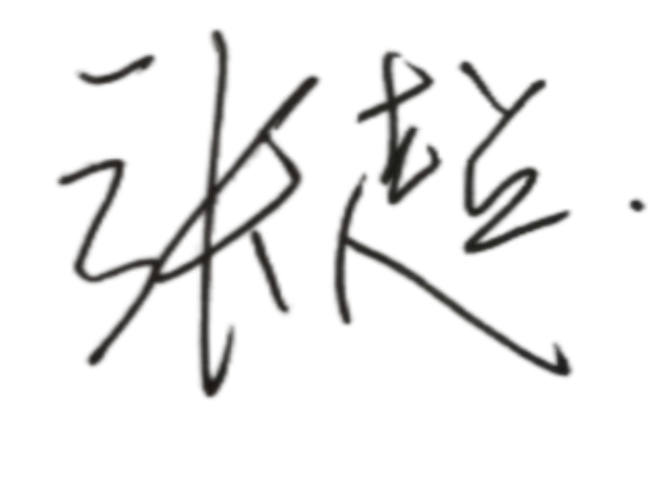 张超.